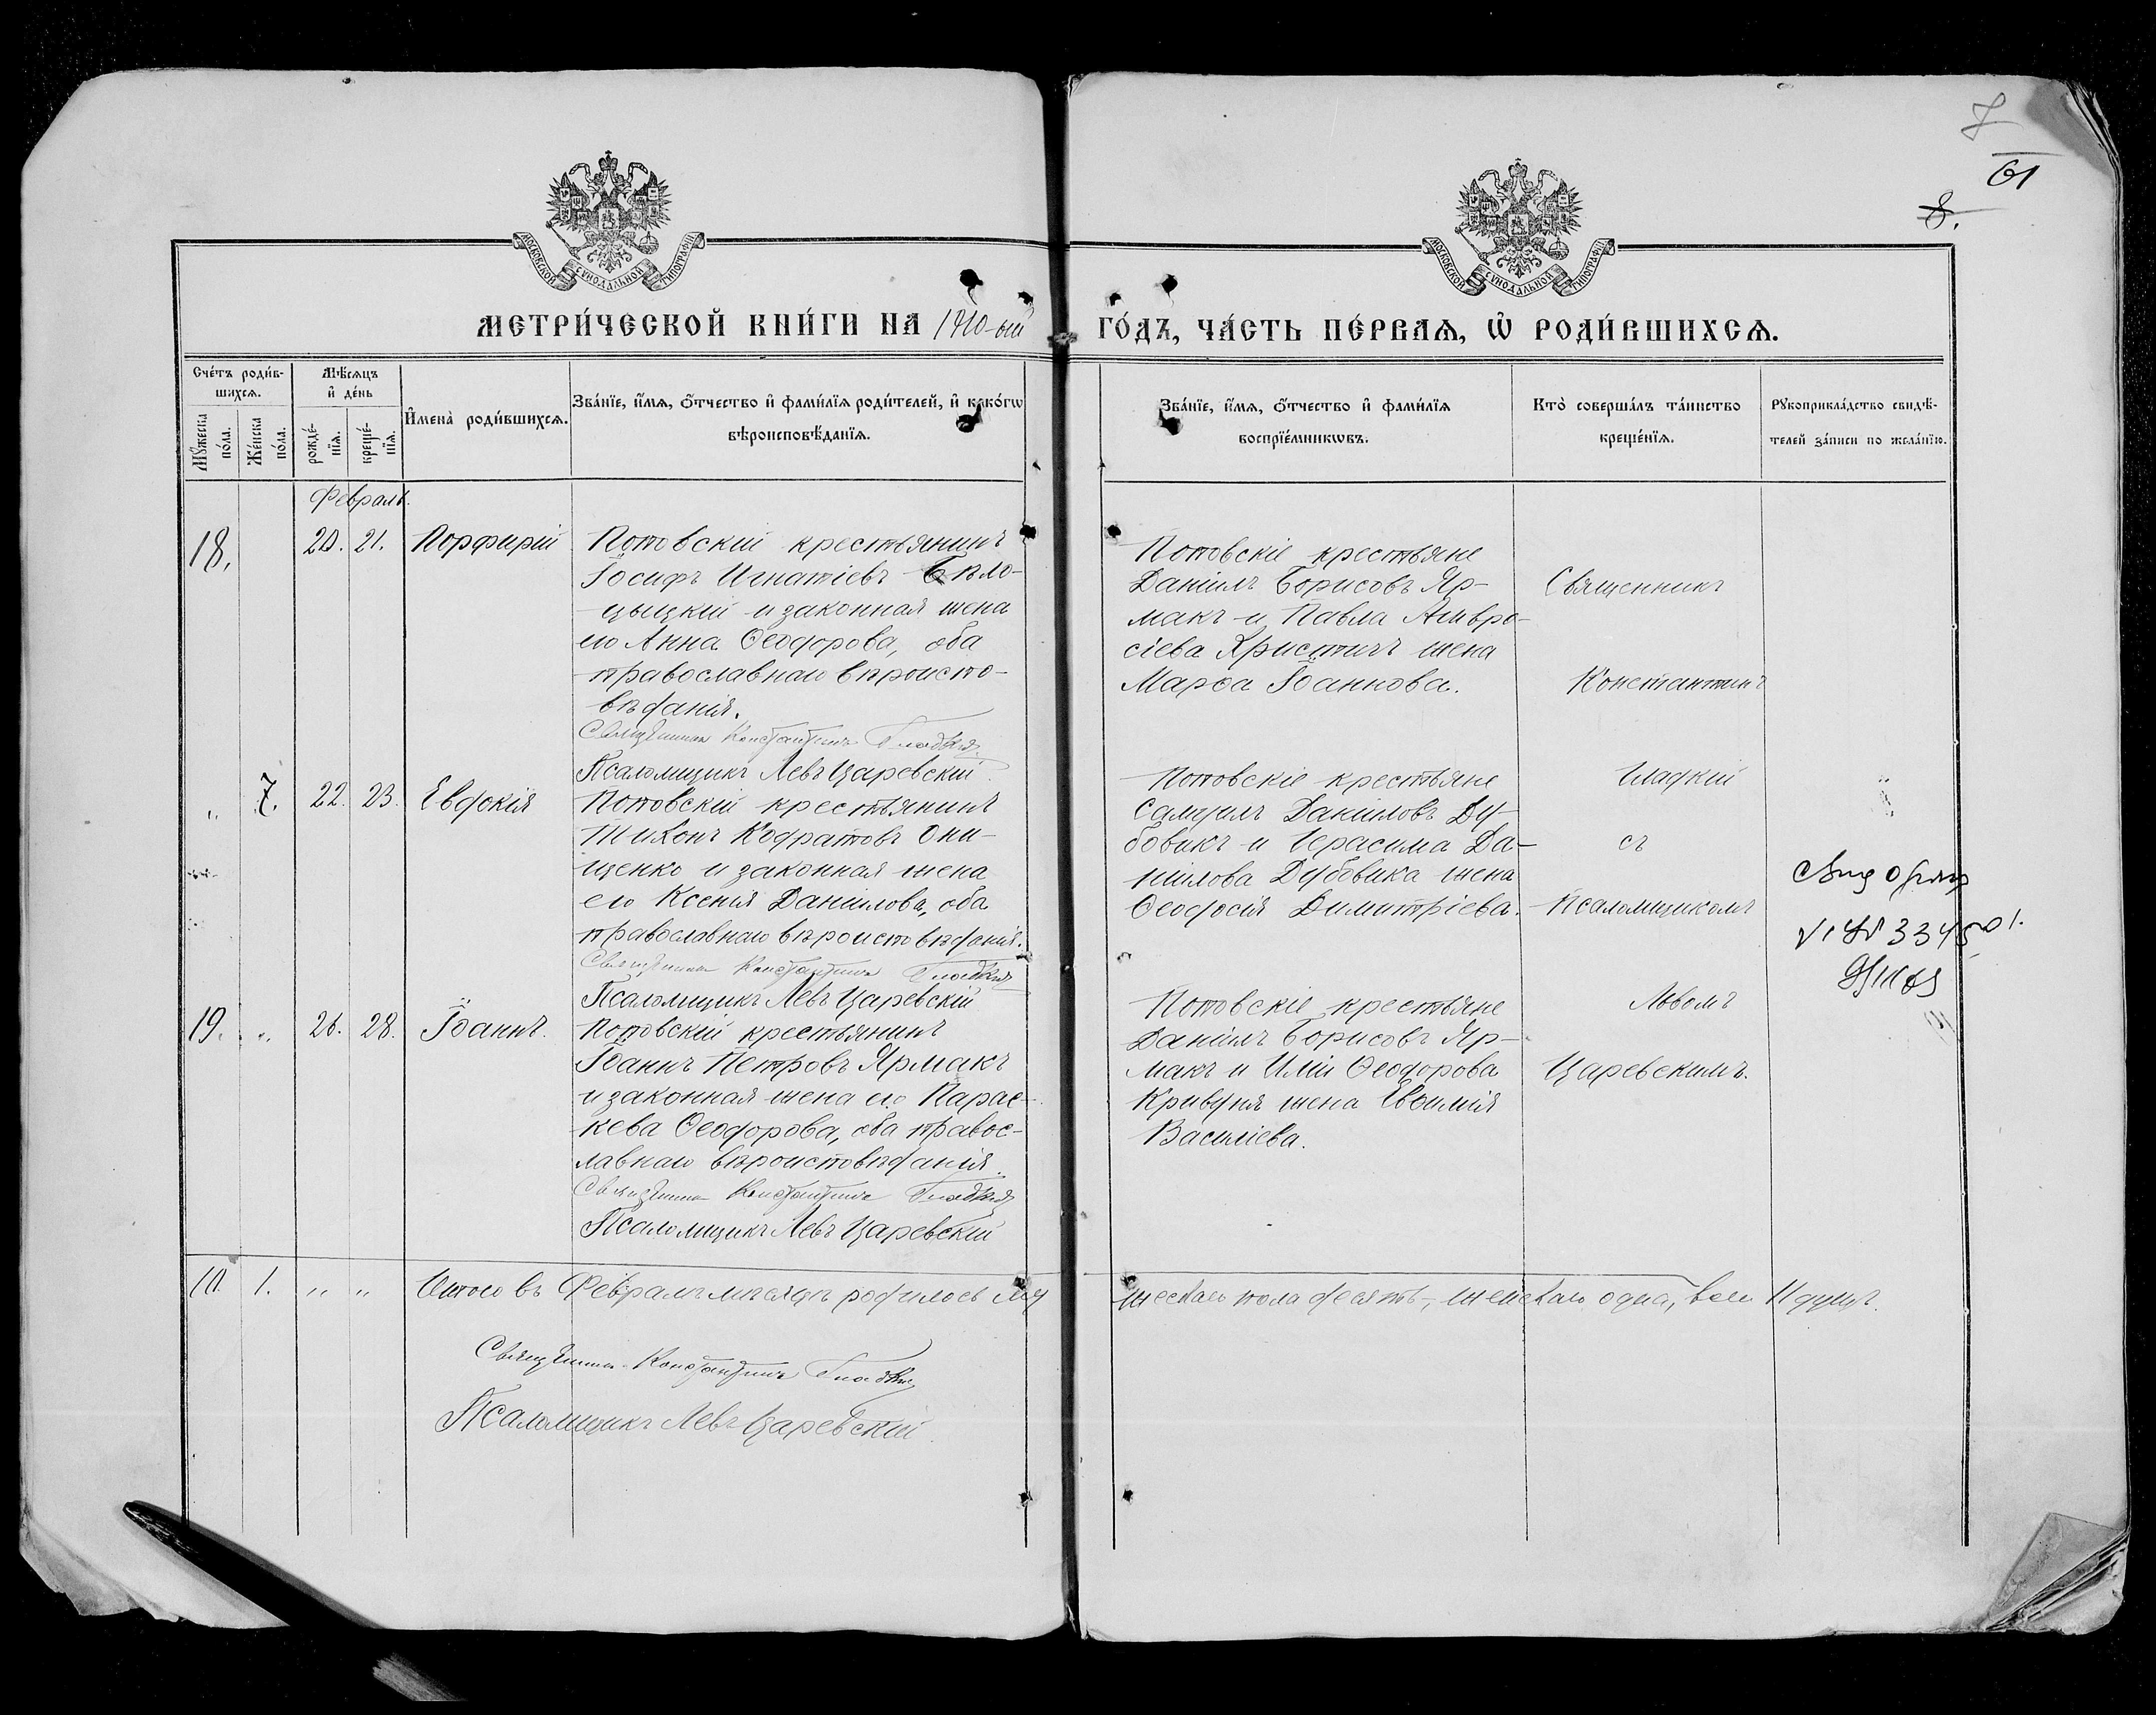 7
61
8.
МОСКОВСКОЙ СУНОДАЛЬНОЙ ТИПОГРАФІИ
МОСКОВСКОЙ СУНОДАЛЬНОЙ ТИПОГРАФІИ
МЕТРИ́ЧЕСКОЙ КНИ́ГИ НА 1910-ый ГО́ДЪ, ЧА́СТЬ ПЕ́РВАѦ, Ѡ҆ РОДИ́ВШИХСѦ.
Сче́тъ роди́в-
шихсѧ.
Мꙋжеска по́ла.
Же́нска по́ла.
Мѣ́сѧцъ
и҆ де́нь
рожде́-
нїѧ.
креще́-
нїѧ.
И҆мена̀ роди́вшихсѧ.
Зва́нїе, и҆́мѧ, о҆́тчество и҆ фами́лїѧ роди́телей, и҆ како́гѡ
вѣроисповѣ́данїѧ.
Зва́нїе, и҆́мѧ, о҆́тчество и҆ фами́лїѧ
воспрїе́мникѡвъ.
Кто̀ соверша́лъ та́инство
креще́нїѧ.
Рꙋкоприкла́дство свидѣ́-
телей за́писи по жела́нїю.
Февраль.
18. 20. 21. Порфирій
Потовскій крестьянинъ
Іосифъ Игнатіевъ Бѣло-
цыцкій и законная жена
его Анна Ѳеодорова, оба
православнаго вѣроиспо-
вѣданія.
Священникъ Константинъ Гладкій
Псаломщикъ Левъ Царевскій.
Потовскіе крестьяне
Даніилъ Борисовъ Яр-
макъ и Павла Амвро-
сіева Христичъ жена
Марѳа Іоаннова.
Священникъ
Константинъ
„ 7. 22. 23. Евдокія
Потовскій крестьянинъ
Тихонъ Кодратовъ Они-
щенко и законная жена
его Ксенія Даніилова, оба
православнаго вѣроисповѣданія.
Священникъ Константинъ Гладкій
Псаломщикъ Левъ Царевскій
Потовскіе крестьяне
Самуилъ Даніиловъ Ду-
бовикъ и Герасима Да-
ніилова Дубовика жена
Ѳеодосія Димитріева.
Гладкій
съ
Псаломщикомъ
19. „ 26. 28. Іоаннъ.
Потовскій крестьянинъ
Іоаннъ Петровъ Ярмакъ
и законная жена его Парас-
кева Ѳеодорова, оба правос-
лавнаго вѣроисповѣданія.
Священникъ Константинъ Гладкій
Псаломщикъ Левъ Царевскій
Потовскіе крестьяне
Даніилъ Борисовъ Яр-
макъ и Иліи Ѳеодорова
Кривуня жена Евѳимія
Василіева.
Львомъ
Царевскимъ.
10. 1. „ „ Итого въ Февралѣ мѣсяцѣ родилось му
жескаго пола десять, женскаго одна, всего 11 душъ.
Священникъ Константинъ Гладкій
Псаломщикъ Левъ Царевскій.